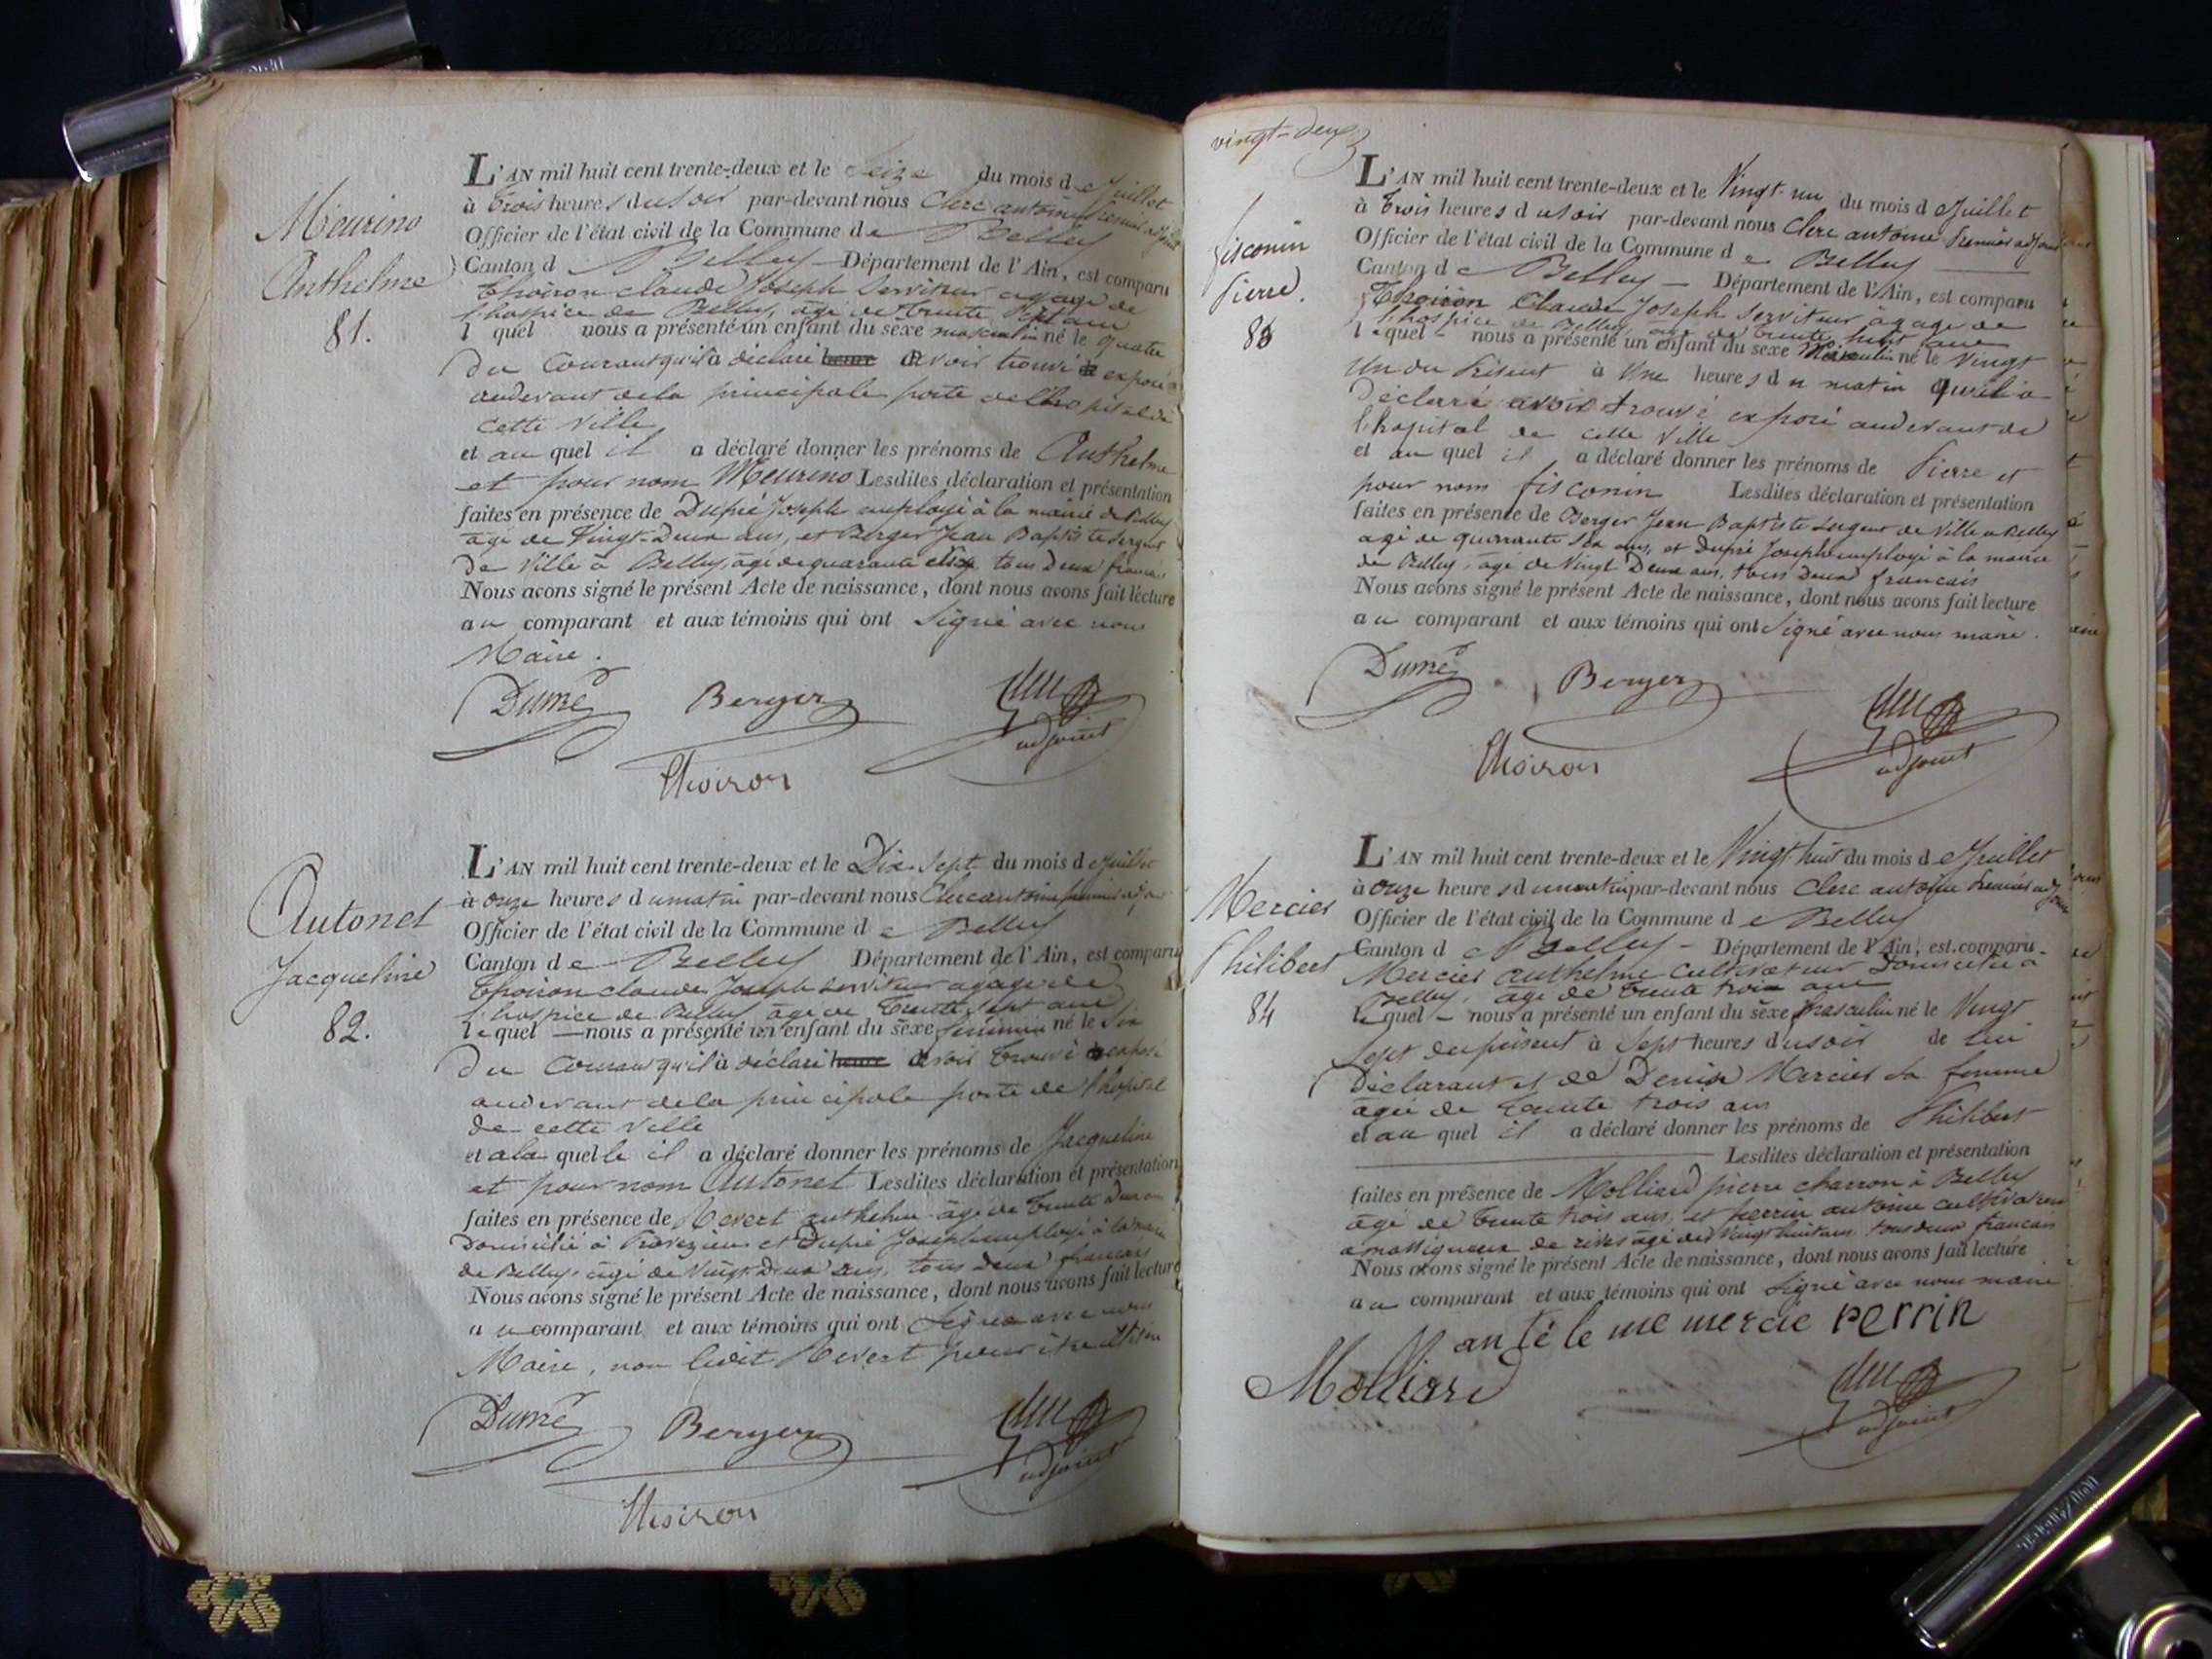 Meurino
Anthelme
81.
L'AN mil huit cent trente-deux et le Seize du mois de Juillet
à trois heures du soir par-devant nous Clerc antoine premier adjoint
Officier de l'état civil de la Commune de Belley
Canton d Belley Département de l'Ain, est comparu
Thoiron claude Joseph Serviteur agage de
l'hospice de Belley, âgé de trente sept ans
l quel nous a présenté un enfant du sexe masculin né le quatre
du Courant qu'il à déclaré heure avoir trouvé exposé
audevant dela principale porte de l'hopital de
cette ville
et au quel il a déclaré donner les prénoms de Anthelme
et pour nom Meurino Lesdites déclaration et présentation
faites en présence de Dupré Joseph employé à la mairie de Belley
âgé de Vingt-Deux ans, et Berger Jean Baptiste Sergent
de Ville à Belley, âgé de quarante six, tous deux français
Nous avons signé le présent Acte de naissance, dont nous avons fait lecture
au comparant et aux témoins qui ont Signé avec nous
Maire.
Berger
adjoint
Thoiron
Autonet
Jacqueline
82.
L'AN mil huit cent trente-deux et le Dix Sept du mois de Juillet
à onze heures du matin par-devant nous Clerc antoine premier adjoint
Officier de l'état civil de la Commune de Belley
Canton de Belley Département de l'Ain, est comparu
Thoiron claude Joseph Serviteur agage de
l'hospice de Belley âgé de trente sept ans
lequel nous a présenté un enfant du sexe féminin né le Six
du Courant qu'il à déclaré heure avoir trouvé exposé
audevant dela principale porte de l'hopital
de cette ville
et a la quelle il a déclaré donner les prénoms de Jacqueline
et pour nom Autonet Lesdites déclaration et présentation
faites en présence de anthelme âgé de trente deux ans
Domicilié à et Dupré Joseph employé à la mairie
de Belley, âgé de Vingt Deux ans, tous deux français
Nous avons signé le présent Acte de naissance, dont nous avons fait lecture
au comparant et aux témoins qui ont Signé avec nous
Maire, non ledit pour être
Berger
adjoint
Thoiron
vingt-deux
fisconin
Pierre.
83
L'AN mil huit cent trente-deux et le Vingt-un du mois de Juillet
à trois heures du soir par-devant nous Clerc antoine Premier adjoint
Officier de l'état civil de la Commune de Belley
Canton de Belley Département de l'Ain, est comparu
Thoiron Claude Joseph Serviteur àgage de
l'hospice de Belley, âgé de trente huit ans
lequel nous a présenté un enfant du sexe Masculin né le Vingt
Un du Présent à Une heures du matin qu'il a
Déclaré avoir trouvé exposé audevant de
l'hopital de cette Ville
et au quel il a déclaré donner les prénoms de Pierre et
pour nom fisconin Lesdites déclaration et présentation
faites en présence de Berger Jean Baptiste Sergent de Ville a Belley
âgé de quarante six ans, et Dupré Joseph employé à la mairie
de Belley, âgé de Vingt Deux ans, tous Deux français
Nous avons signé le présent Acte de naissance, dont nous avons fait lecture
au comparant et aux témoins qui ont Signé avec nous maire.
Berger
adjoint
Thoiron
Mercier
Philibert
84
L'AN mil huit cent trente-deux et le Vingt huit du mois de Juillet
à onze heures du matin par-devant nous Clerc antoine Premier adjoint
Officier de l'état civil de la Commune de Belley
Canton de Belley Département de l'Ain, est comparu
Mercier anthelme Cultivateur Domicilié à
Belley, âgé de trente trois ans
lequel nous a présenté un enfant du sexe Masculin né le Vingt
Sept du présent à Sept heures du soir de lui
Déclarant et de Denise Mercier sa femme
âgée de trente trois ans
et au quel il a déclaré donner les prénoms de Philibert
Lesdites déclaration et présentation
faites en présence de Molliard pierre charron à Belley
âgé de trente trois ans, et perrin antoine cultivateur
de âgé de Vingt huit ans, tous deux français
Nous avons signé le présent Acte de naissance, dont nous avons fait lecture
au comparant et aux témoins qui ont Signé avec nous maire
an té le me mercie perrin
Molliard
adjoint